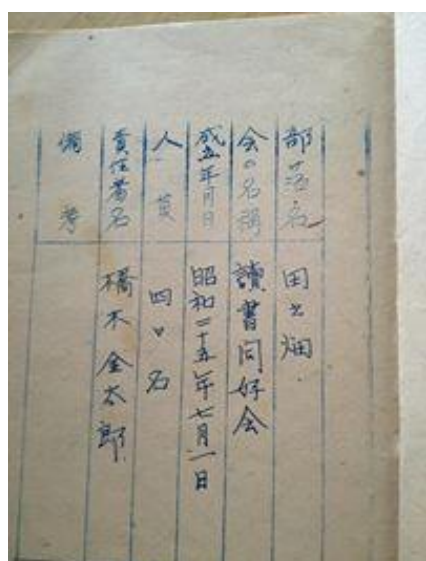 部落名 田之畑
会の名稱 讀書同好会
成立年月日 昭和二十五年七月一日
人員 四〇名
責任者名 橋本金太郎
備考